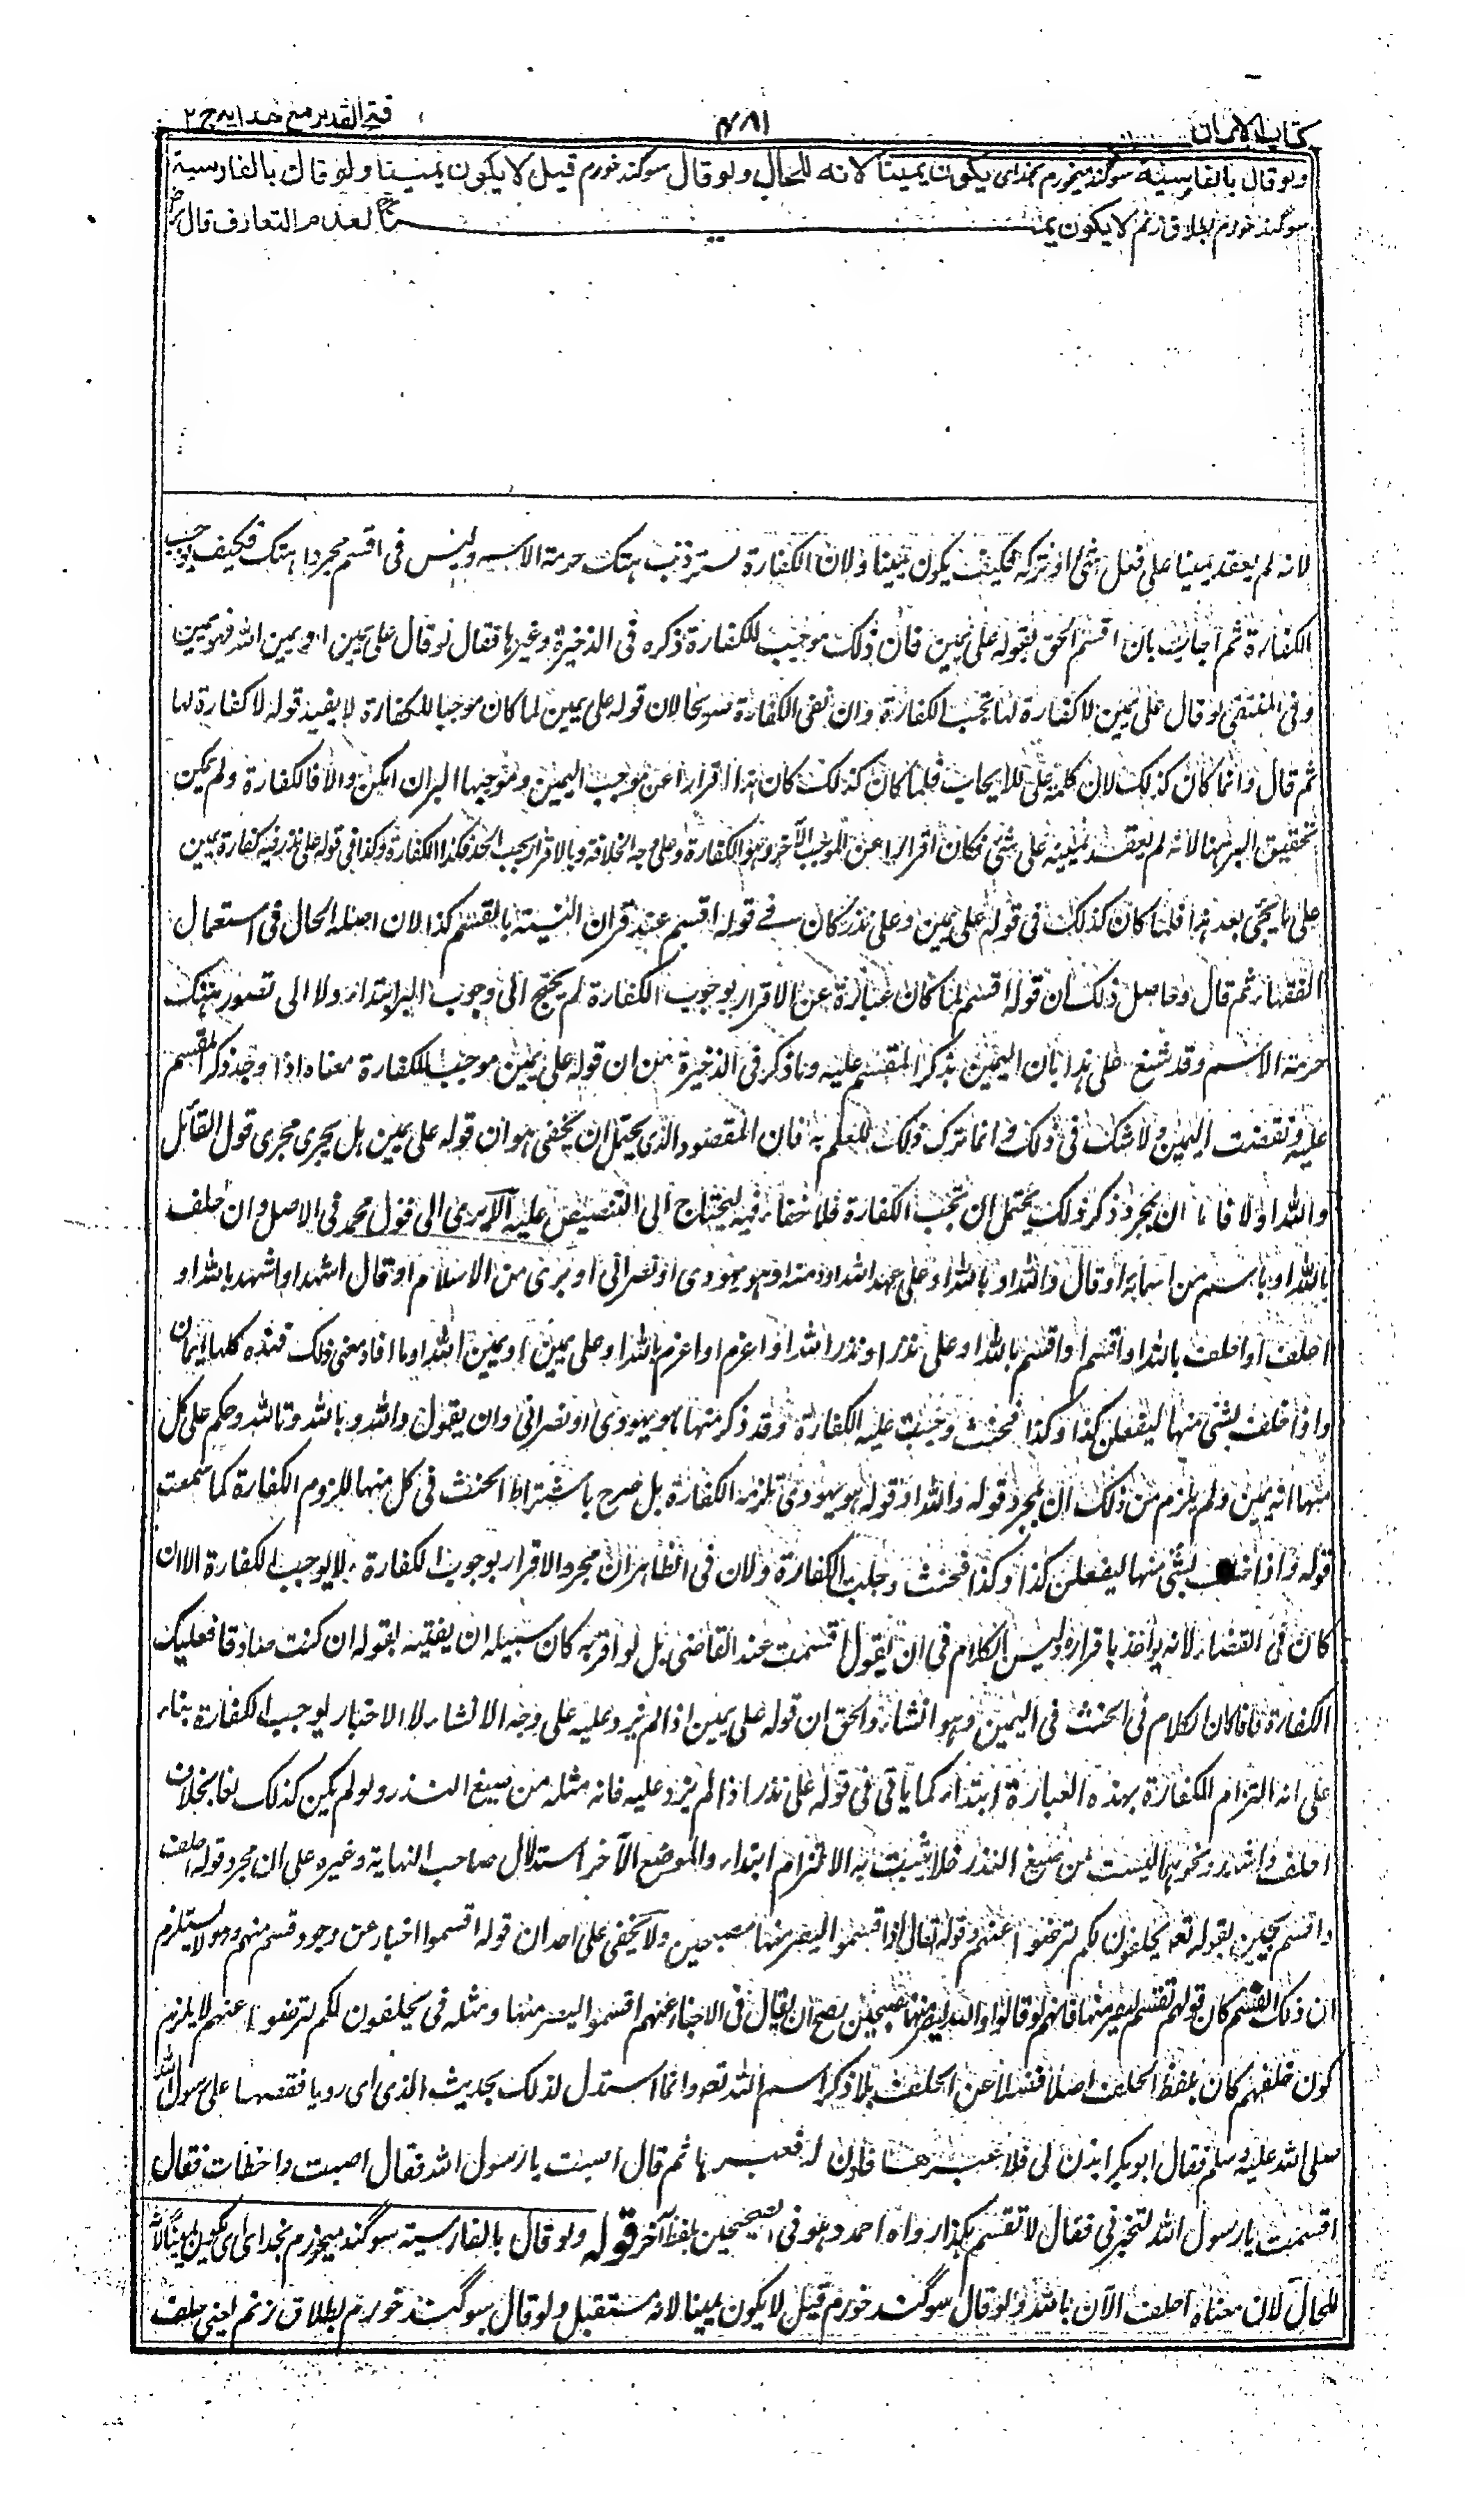 كتاب الايمان
٤٨١
فتح القدير مع هدايه ج ٢
ولو قال بالفارسية سوگند ميخورم بخداى يكون يمينا لانه للحال ولو قال سوگند خورم قيل لا يكون يمينا ولو قال بالفارسية
سوگند خورم بطلاق زنم لا يكون يمينا لعدم التعارف قال رض
لانه لم يعقد يمينا على فعل شئ او تركه فكيف يكون يمينا ولان الكفارة لستر ذنب هتك حرمة الاسم وليس فى اقسم مجردا هتك فكيف يوجب
الكفارة ثم اجاب بان اقسم الحق بقوله على يمين فان ذلك موجب للكفارة ذكره فى الذخيرة وغيرها فقال لو قال على يمين او يمين الله فهو يمين
وفى المنتقى لو قال على يمين لا كفارة لها تجب الكفارة وان نفى الكفارة صريحا لان قوله على يمين لما كان موجبا للكفارة لا يفيد قوله لا كفارة لها
ثم قال وانما كان كذلك لان كلمة على للايجاب فلما كان كذلك كان هذا اقرارا عن موجب اليمين وموجبها البر ان امكن والا فالكفارة ولم يكن
تحقيق البر ههنا لانه لم يعقد يمينه على شئ فكان اقرارا عن الموجب الآخر وهو الكفارة وعلى وجه الخلافة وبالاقرار يجب الحد فكذا الكفارة وكذا فى قوله على نذر فيه كفارة يمين
على ما يجئ بعد هذا فلما كان كذلك فى قوله على يمين وعلى نذر كان فى قوله اقسم عند قران النية بالقسم كذا لان اصله الحال فى استعمال
الفقهاء ثم قال وحاصل ذلك ان قوله اقسم لما كان عبارة عن الاقرار بوجوب الكفارة لم يحتج الى وجوب البر ابتداء ولا الى تصور هتك
حرمة الاسم وقد شنع على هذا بان اليمين بذكر المقسم عليه وما ذكر فى الذخيرة من ان قوله على يمين موجب للكفارة معناه اذا وجد ذكر المقسم
عليه ونقضت اليمين ولا شك فى ذلك وانما ترك ذلك للعلم به فان المقصود الذى يحتمل ان يخفى هو ان قوله على يمين هل يجرى مجرى قول القائل
والله او لا فاما ان بمجرد ذكر ذلك يحتمل ان تجب الكفارة فلا خفاء فيه ليحتاج الى التنصيص عليه الا يرى الى قول محمد فى الاصل وان حلف
بالله او باسم من اسمائه او قال والله او بالله او على عهد الله او ذمته او هو يهودى او نصرانى او برئ من الاسلام او قال اشهد او اشهد بالله او
احلف او احلف بالله او اقسم او اقسم بالله او على نذر او نذر الله او اعزم او اعزم بالله او على يمين او يمين الله او ما افاد معنى ذلك فهذه كلها ايمان
واذا حلف بشئ منها ليفعلن كذا وكذا فحنث وجبت عليه الكفارة وقد ذكر منها هو يهودى او نصرانى وان يقول والله وبالله وتالله وحكم على كل
منها انه يمين ولم يلزم من ذلك ان بمجرد قوله والله او قوله هو يهودى تلزمه الكفارة بل صرح باشتراط الحنث فى كل منها للزوم الكفارة كما سمعت
قوله واذا حلف بشئ منها ليفعلن كذا وكذا فحنث وجبت الكفارة ولان فى الظاهر ان مجرد الاقرار بوجوب الكفارة لا يوجب الكفارة الا ان
كان فى القضاء لانه يؤاخذ باقراره وليس الكلام فى ان يقول اقسمت عند القاضى بل لو اقر به كان سبيله ان يفتيه بقوله ان كنت صادقا فعليك
الكفارة فاما كان الكلام فى الحنث فى اليمين وهو انشاء والحق ان قوله على يمين اذا لم يزد عليه على وجه الانشاء لا الاخبار يوجب الكفارة بناء
على انه التزام الكفارة بهذه العبارة ابتداء كما ياتى فى قوله على نذر اذا لم يزد عليه فانه مثله من صيغ النذر ولو لم يكن كذلك لغا بخلاف
احلف واشهد ونحوهما ليست من صيغ النذر فلا يثبت به الالتزام ابتداء والموضع الآخر استدلال صاحب النهاية وغيره على ان مجرد قوله احلف
واقسم يمين بقوله تعه يحلفون لكم لترضوا عنهم وقوله تعالى اذ اقسموا ليصرمنها مصبحين ولا يخفى على احد ان قوله اقسموا اخبار عن وجود قسم منهم وهو لا يستلزم
ان ذلك القسم كان قولهم نقسم ليصرمنها فانهم لو قالوا والله ليصرمنها مصبحين يصح ان يقال فى الاخبار عنهم اقسموا ليصرمنها ومثله فى يحلفون لكم لترضوا عنهم لا يلزم
كون حلفهم كان بلفظ الحلف اصلا فضلا عن الحلف بلا ذكر اسم الله تعه وانما استدل لذلك بحديث الذى راى رويا فقصها على رسول الله
صلى الله عليه وسلم فقال ابو بكر ايذن لى فلاعبرها فاذن له فعبرها ثم قال اصبت يا رسول الله فقال اصبت واخطات فقال
اقسمت يا رسول الله لتخبرنى فقال لا تقسم هكذا رواه احمد وهو فى الصحيحين بلفظ آخر قوله ولو قال بالفارسية سوگند ميخورم بخداى اى يكون يمينا لانه
للحال لان معناه احلف الآن بالله ولو قال سوگند خورم قيل لا يكون يمينا لانه مستقبل ولو قال سوگند خورم بطلاق زنم اعنى حلف